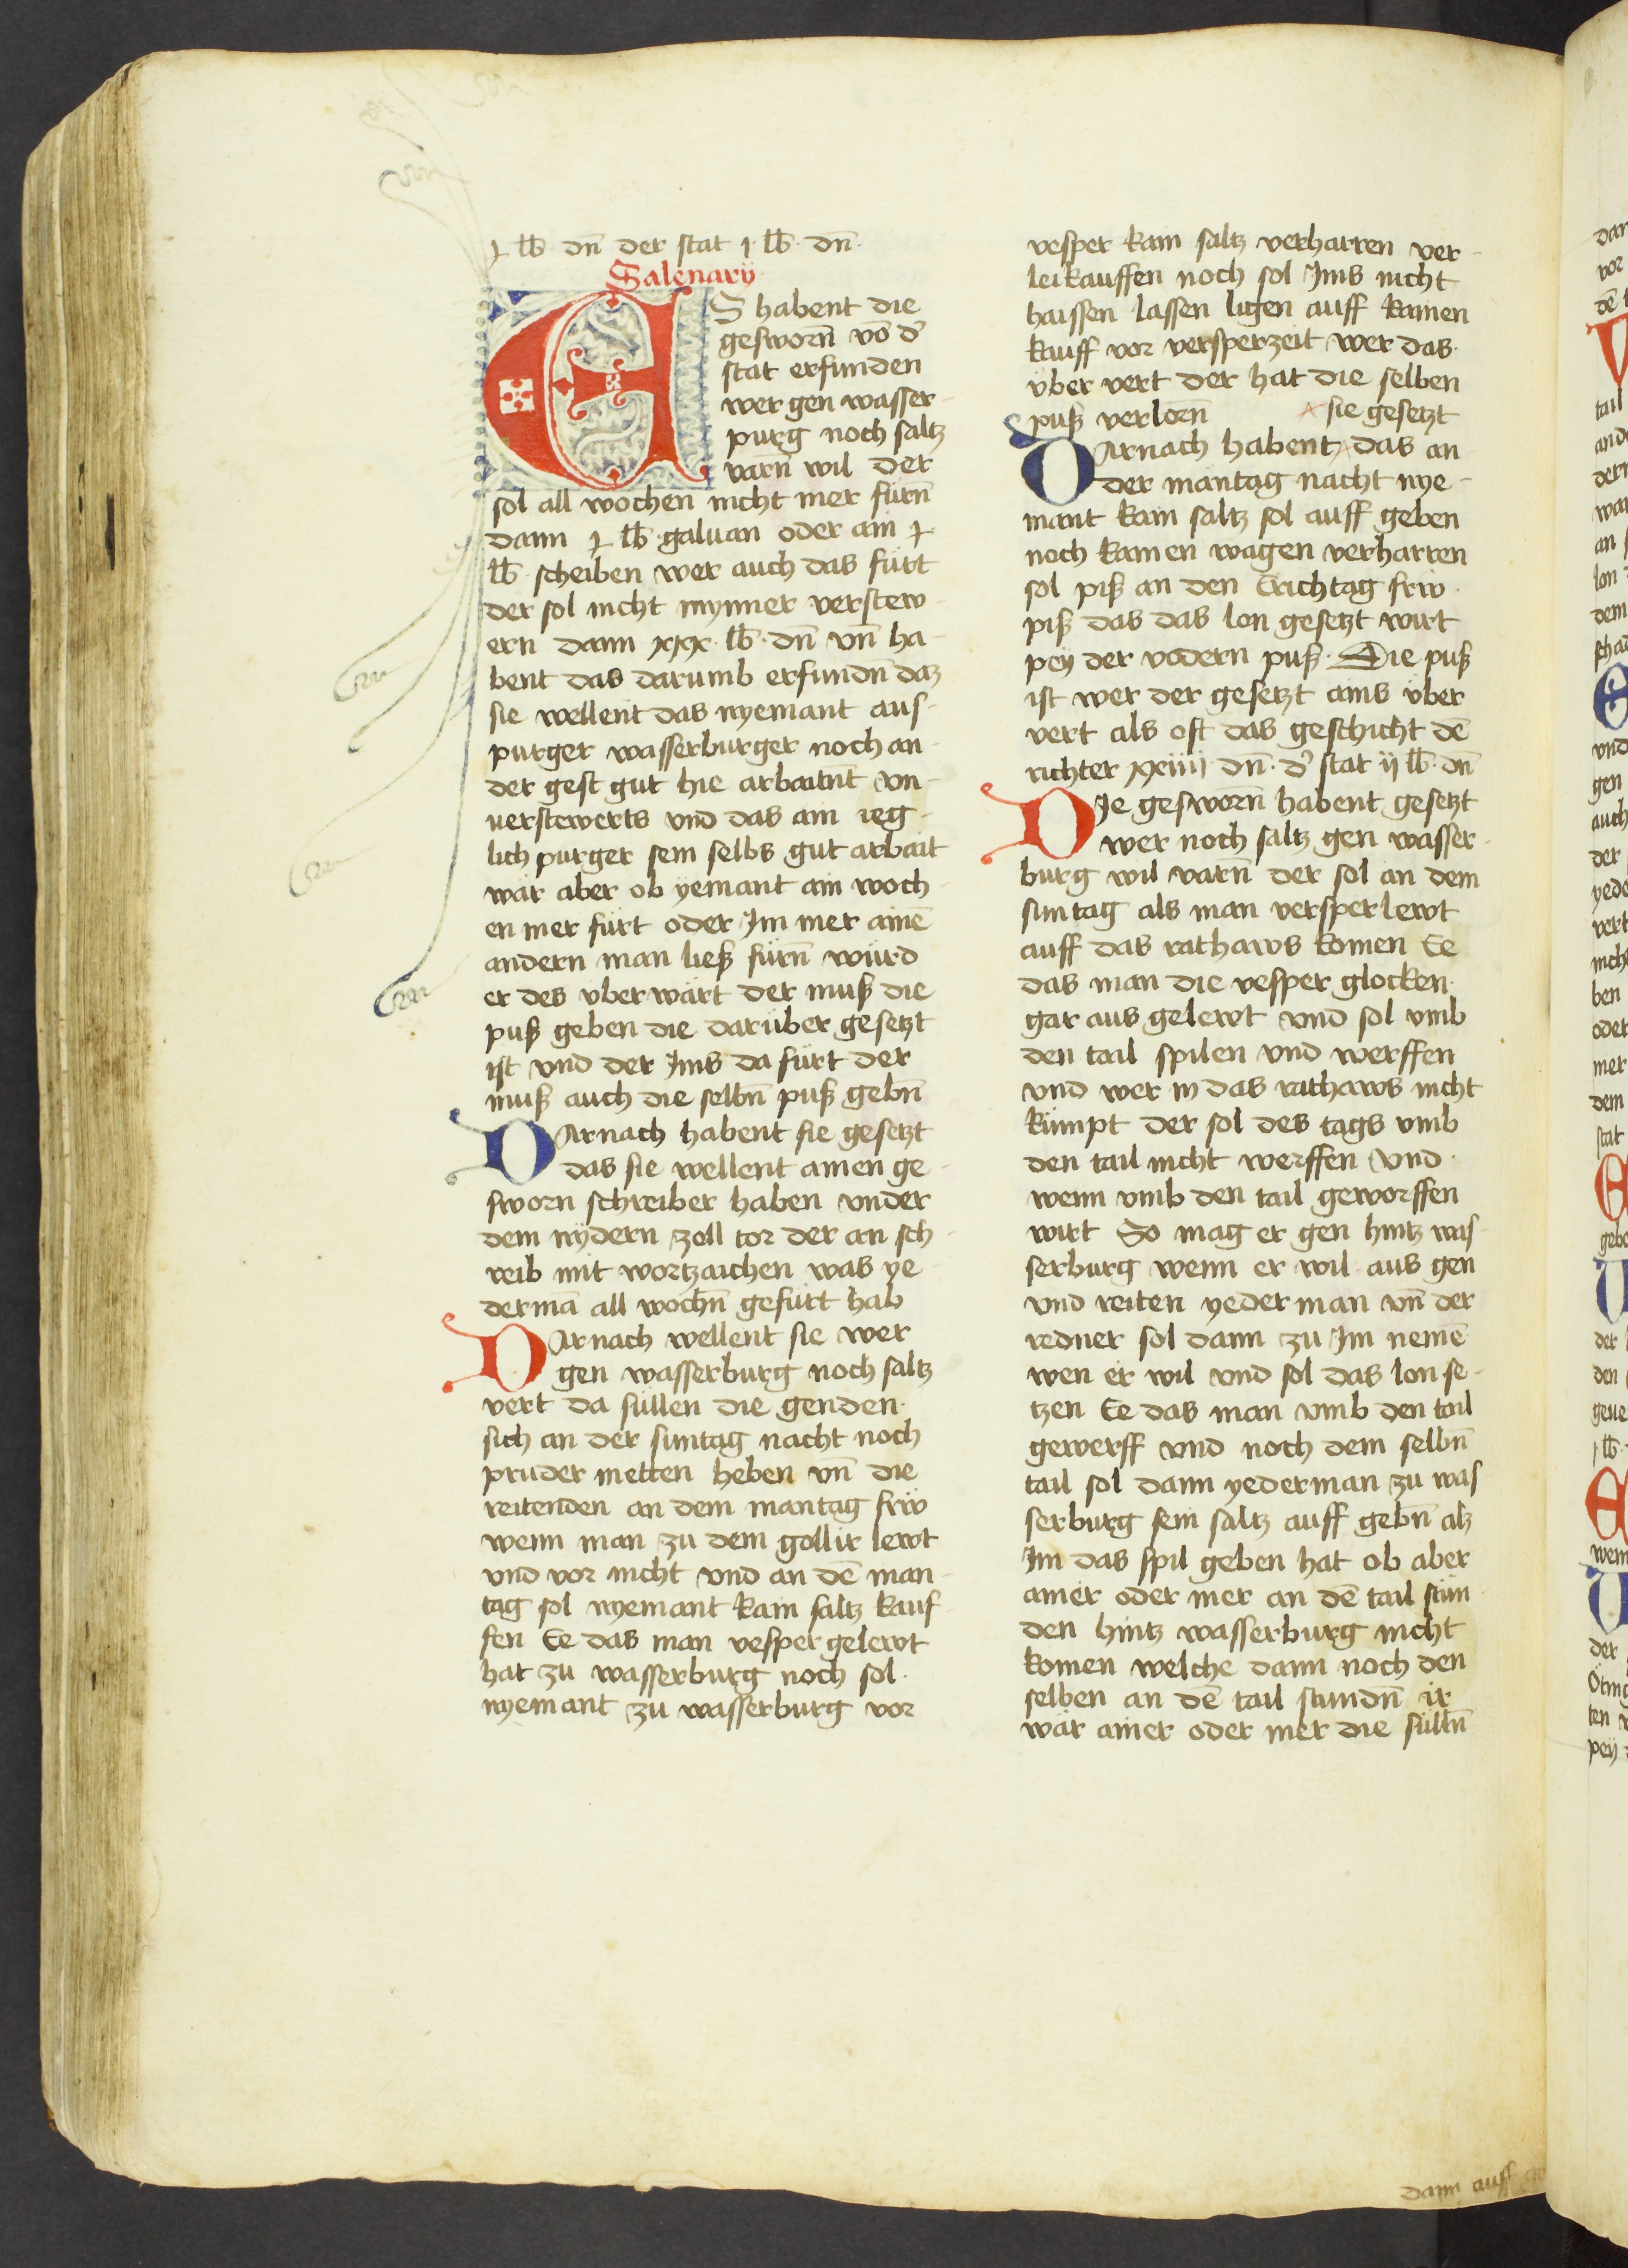 ɉ lb dn̄ der stat ı lb dn̄
Salenarÿ
ES habent die
gesworn̄ vō d̄
stat erfunden
wer gen wasser-
purg noch saltz
varn̄ wil der
sol all wochen nicht mer fürn̄
dann ɉ lb galuan oder ain ɉ
lb scheiben wer auch das fürt
der sol nicht mynner verstew-
ern dann xxx lb dn̄ vn̄ ha-
bent das darumb erfundn̄ daz
sie wellent das nyemant aus-
purger wasserburger noch an-
der gest gut hie arbaitn̄t vn-
uerstewerts vnd das ain ieg-
lich purger sein selbs gut arbait
wär aber ob yemant ain woch-
en mer fürt oder Im mer ainē
andern man ließ fürn̄ würd
er des vberwärt der muß die
puß geben die darüber gesetzt
ist vnd der Ims da fürt der
muß auch die selbn̄ puß gebn̄
DArnach habent sie gesetzt
das sie wellent ainen ge-
sworn schreiber haben vnder
dem nydern zoll tor der an sch-
reib mit wortzaichen was ye-
dermā all wochn̄ gefürt hab
DArnach wellent sie wer
gen wasserburg noch saltz
vert da süllen die genden
sich an der suntag nacht noch
pruder metten heben vn̄ die
reitenden an dem mantag frw
wenn man zu dem gollir lewt
vnd vor nicht vnd an dē man-
tag sol nyemant kain saltz kauf-
fen Ee das man vesper gelewt
hat zu wasserburg noch sol
nyemant zu wasserburg vor
vesper kain saltz verharren ver-
leikauffen noch sol Ims nicht
haissen lassen ligen auff kainen
kauff vor versperzeit wer das
vber vert der hat die selben
puß verlorn̄ sie gesetzt
DArnach habent das an
der mantag nacht nye-
mant kain saltz sol auff geben
noch kainen wagen verharren
sol piß an den Erichtag frw
piß das das lon gesetzt wirt
pey der vodern puß Die puß
ist wer der gesetzt ains vber
vert als oft das geschicht dē
richter xxiiij dn̄ d̄ stat ij lb dn̄
DIe gesworn̄ habent gesetzt
wer noch saltz gen wasser-
burg wil varn̄ der sol an dem
suntag als man versper lewt
auff das rathaws komen Ee
das man die vesper glocken
gar aus gelewt vnd sol vmb
den tail spilen vnd werffen
vnd wer in das rathaws nicht
kümpt der sol des tags vmb
den tail nicht werffen vnd
wenn vmb den tail geworffen
wirt So mag er gen hintz was-
serburg wenn er wil aus gen
vnd reiten yederman vn̄ der
redner sol dann zu Im nemē
wen er wil vnd sol das lon se-
tzen Ee das man vmb den tail
gewerff vnd noch dem selbn̄
tail sol dann yederman zu was
serburg sein saltz auff gebn̄ alz
Im das spil geben hat ob aber
ainer oder mer an dē tail stün-
den hintz wasserburg nicht
komen welche dann noch den
selben an dē tail stundn̄ ir
wär ainer oder mer die sülln̄
dann auff